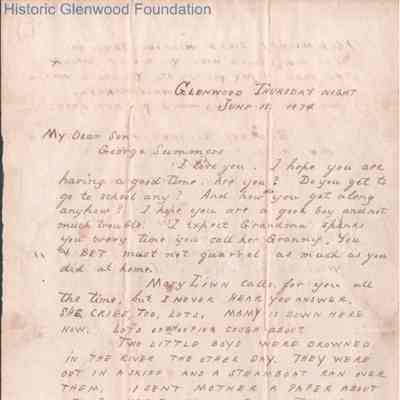 Historic Glenwood Foundation
GLENWOOD THURSDAY NIGHT
JUNE 18. 1874
My Dear Son
George Summers
I love you. I hope you are
having a good time. Are you? Do you get to
go to school any? And how you get along
anyhow? I hope you are a good boy and not
much trouble. I expect Grandma spanks
you every time you call her Granny. You
& BET must not quarrel as much as you
did at home.
Mary Lynn calls for you all
the time, but I NEVER HEAR YOU ANSWER.
SHE CRIES, TOO, LOTS. MAMY IS DOWN HERE
NOW. LOTS OF WHOOPING COUGH ABOUT
TWO LITTLE BOYS WERE DROWNED
IN THE RIVER THE OTHER DAY. THEY WERE
OUT IN A SKIFF AND A STEAMBOAT RAN OVER
THEM. I SENT MOTHER A PAPER ABOUT